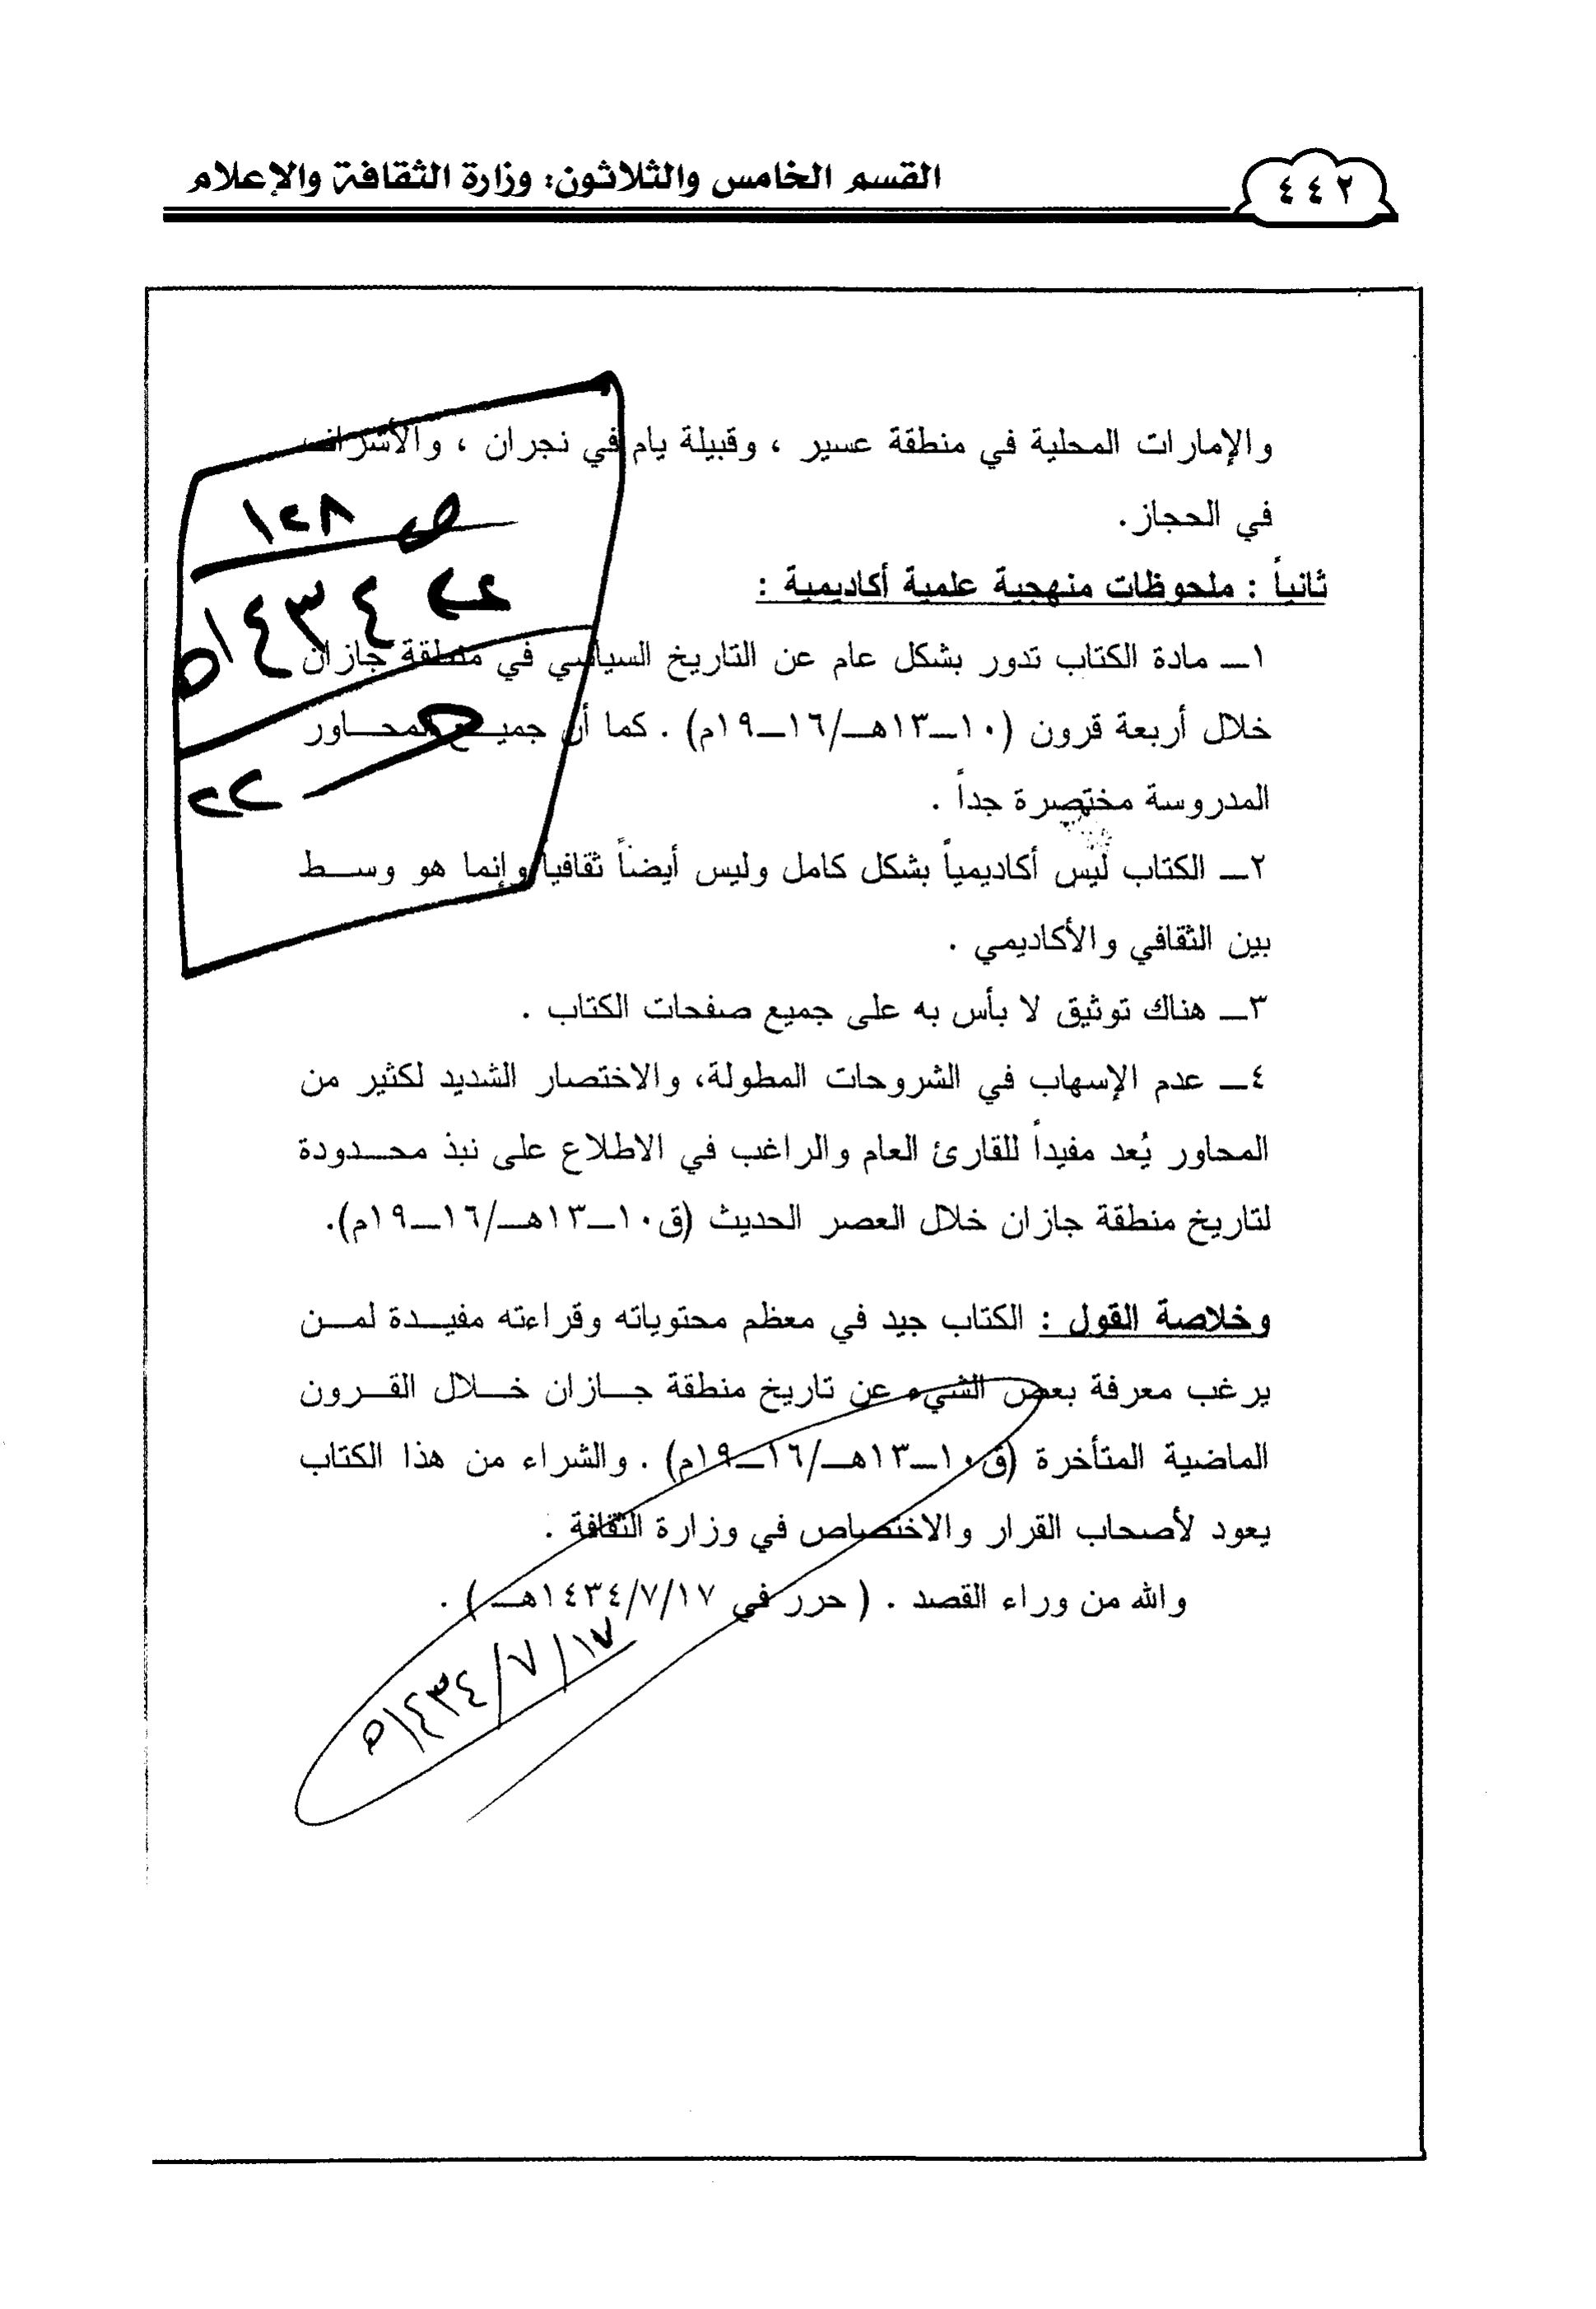 ٤٤٢
القسم الخامس والثلاثون: وزارة الثقافة والإعلام
والإمارات المحلية في منطقة عسير ، وقبيلة يام في نجران ، والأشراف
في الحجاز.
ثانياً : ملحوظات منهجية علمية أكاديمية :
١ــ مادة الكتاب تدور بشكل عام عن التاريخ السياسي في منطقة جازان
خلال أربعة قرون (١٠ــ١٣هــ/١٦ــ١٩م) . كما أن جميــع المحــاور
المدروسة مختصرة جداً .
٢ــ الكتاب ليس أكاديمياً بشكل كامل وليس أيضاً ثقافياً وإنما هو وســط
بين الثقافي والأكاديمي .
٣ــ هناك توثيق لا بأس به على جميع صفحات الكتاب .
٤ــ عدم الإسهاب في الشروحات المطولة، والاختصار الشديد لكثير من
المحاور يُعد مفيداً للقارئ العام والراغب في الاطلاع على نبذ محــدودة
لتاريخ منطقة جازان خلال العصر الحديث (ق١٠ــ١٣هــ/١٦ــ١٩م).
وخلاصة القول : الكتاب جيد في معظم محتوياته وقراءته مفيــدة لمــن
يرغب معرفة بعض الشيء عن تاريخ منطقة جــازان خــلال القــرون
الماضية المتأخرة (ق١٠ــ١٣هــ/١٦ــ١٩م) . والشراء من هذا الكتاب
يعود لأصحاب القرار والاختصاص في وزارة الثقافة .
والله من وراء القصد . ( حرر في ١٤٣٤/٧/١٧هــ ) .
١٤٣٤/٧/١٧ه